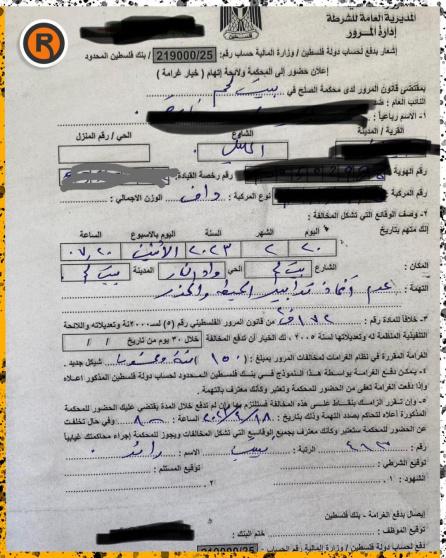 R
المديرية العامة للشرطة
إدارة المرور
إشعار بدفع لحساب دولة فلسطين / وزارة المالية حساب رقم: 219000/25 / بنك فلسطين المحدود
إعلان حضور إلى المحكمة ولائحة إتهام ( خيار غرامة )
بمقتضى قانون المرور لدى محكمة الصلح في بيت لحم
النائب العام : ضد
١- الاسم رباعياً :
القرية / المدينة الشارع الحي / رقم المنزل
الخليل
رقم الهوية رقم رخصة القيادة:
رقم المركبة نوع المركبة : داف الوزن الاجمالي :
٢- وصف الوقائع التي تشكل المخالفة :
إنك متهم بتاريخ
اليوم الشهر السنة اليوم بالاسبوع الساعة
٢٠ ٢ ٢٠٢٣ الاثنين ٠٧,٢٠
المكان : الشارع الحي المدينة
التهمة : عدم اتخاذ تدابير الحيطة والحذر
٣- خلافاً للمادة رقم : من قانون المرور الفلسطيني رقم (٥) لسـ٢٠٠٠ـنة وتعديلاته واللائحة
التنفيذية المنظمة له وتعديلاتها لسنة ٢٠٠٥ ، لك الخيار أن تدفع المخالفة خلال ٣٠ يوم من تاريخ / /
الغرامة المقررة في نظام الغرامات لمخالفات المرور بمبلغ : ( ١٥٠ ) شيكل جديد .
٤- يمكن دفع الغرامة بواسطة هذا النموذج في بنك فلسطين المحدود لحساب دولة فلسطين المذكور اعلاه
وإذا دفعت الغرامة تعفى من الحضور للمحكمة وتعتبر وكأنك معترف بالتهمة .
٥- وإن تقرر الزامك بنقاط على هذه المخالفة فستلتزم بها وإن لم تدفع خلال المدة يقتضي عليك الحضور للمحكمة
المذكورة أعلاه لتحاكم بصدد التهمة وذلك بتاريخ : الساعة : ٨ وفي حال تخلفت
عن الحضور للمحكمة ستعتبر وكأنك معترف بجميع الوقائع التي تشكل المخالفات ويجوز للمحكمة إجراء محاكمتك غيابياً
رقم : الرتبة : الاسم : رائد
توقيع الشرطي : توقيع المستلم :
الشهود : ١. ٢.
إيصال بدفع الغرامة - بنك فلسطين
توقيع الموظف : ختم البنك :
دفع لحساب دولة فلسطين / وزارة المالية رقم الحساب 219000/25